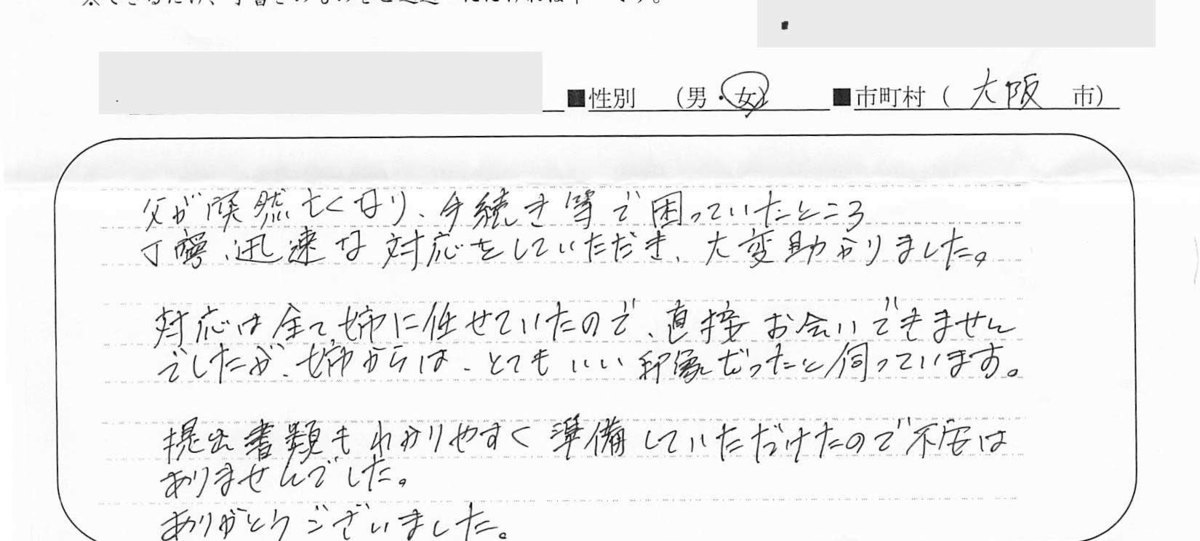 ■性別 （男・女） ■市町村（ 大阪 市）
父が突然亡くなり、手続き等で困っていたところ
丁寧、迅速な対応をしていただき、大変助かりました。
対応は全て姉に任せていたので、直接お会いできません
でしたが、姉からは、とてもいい印象だったと伺っています。
提出書類もわかりやすく準備していただけたので不安は
ありませんでした。
ありがとうございました。